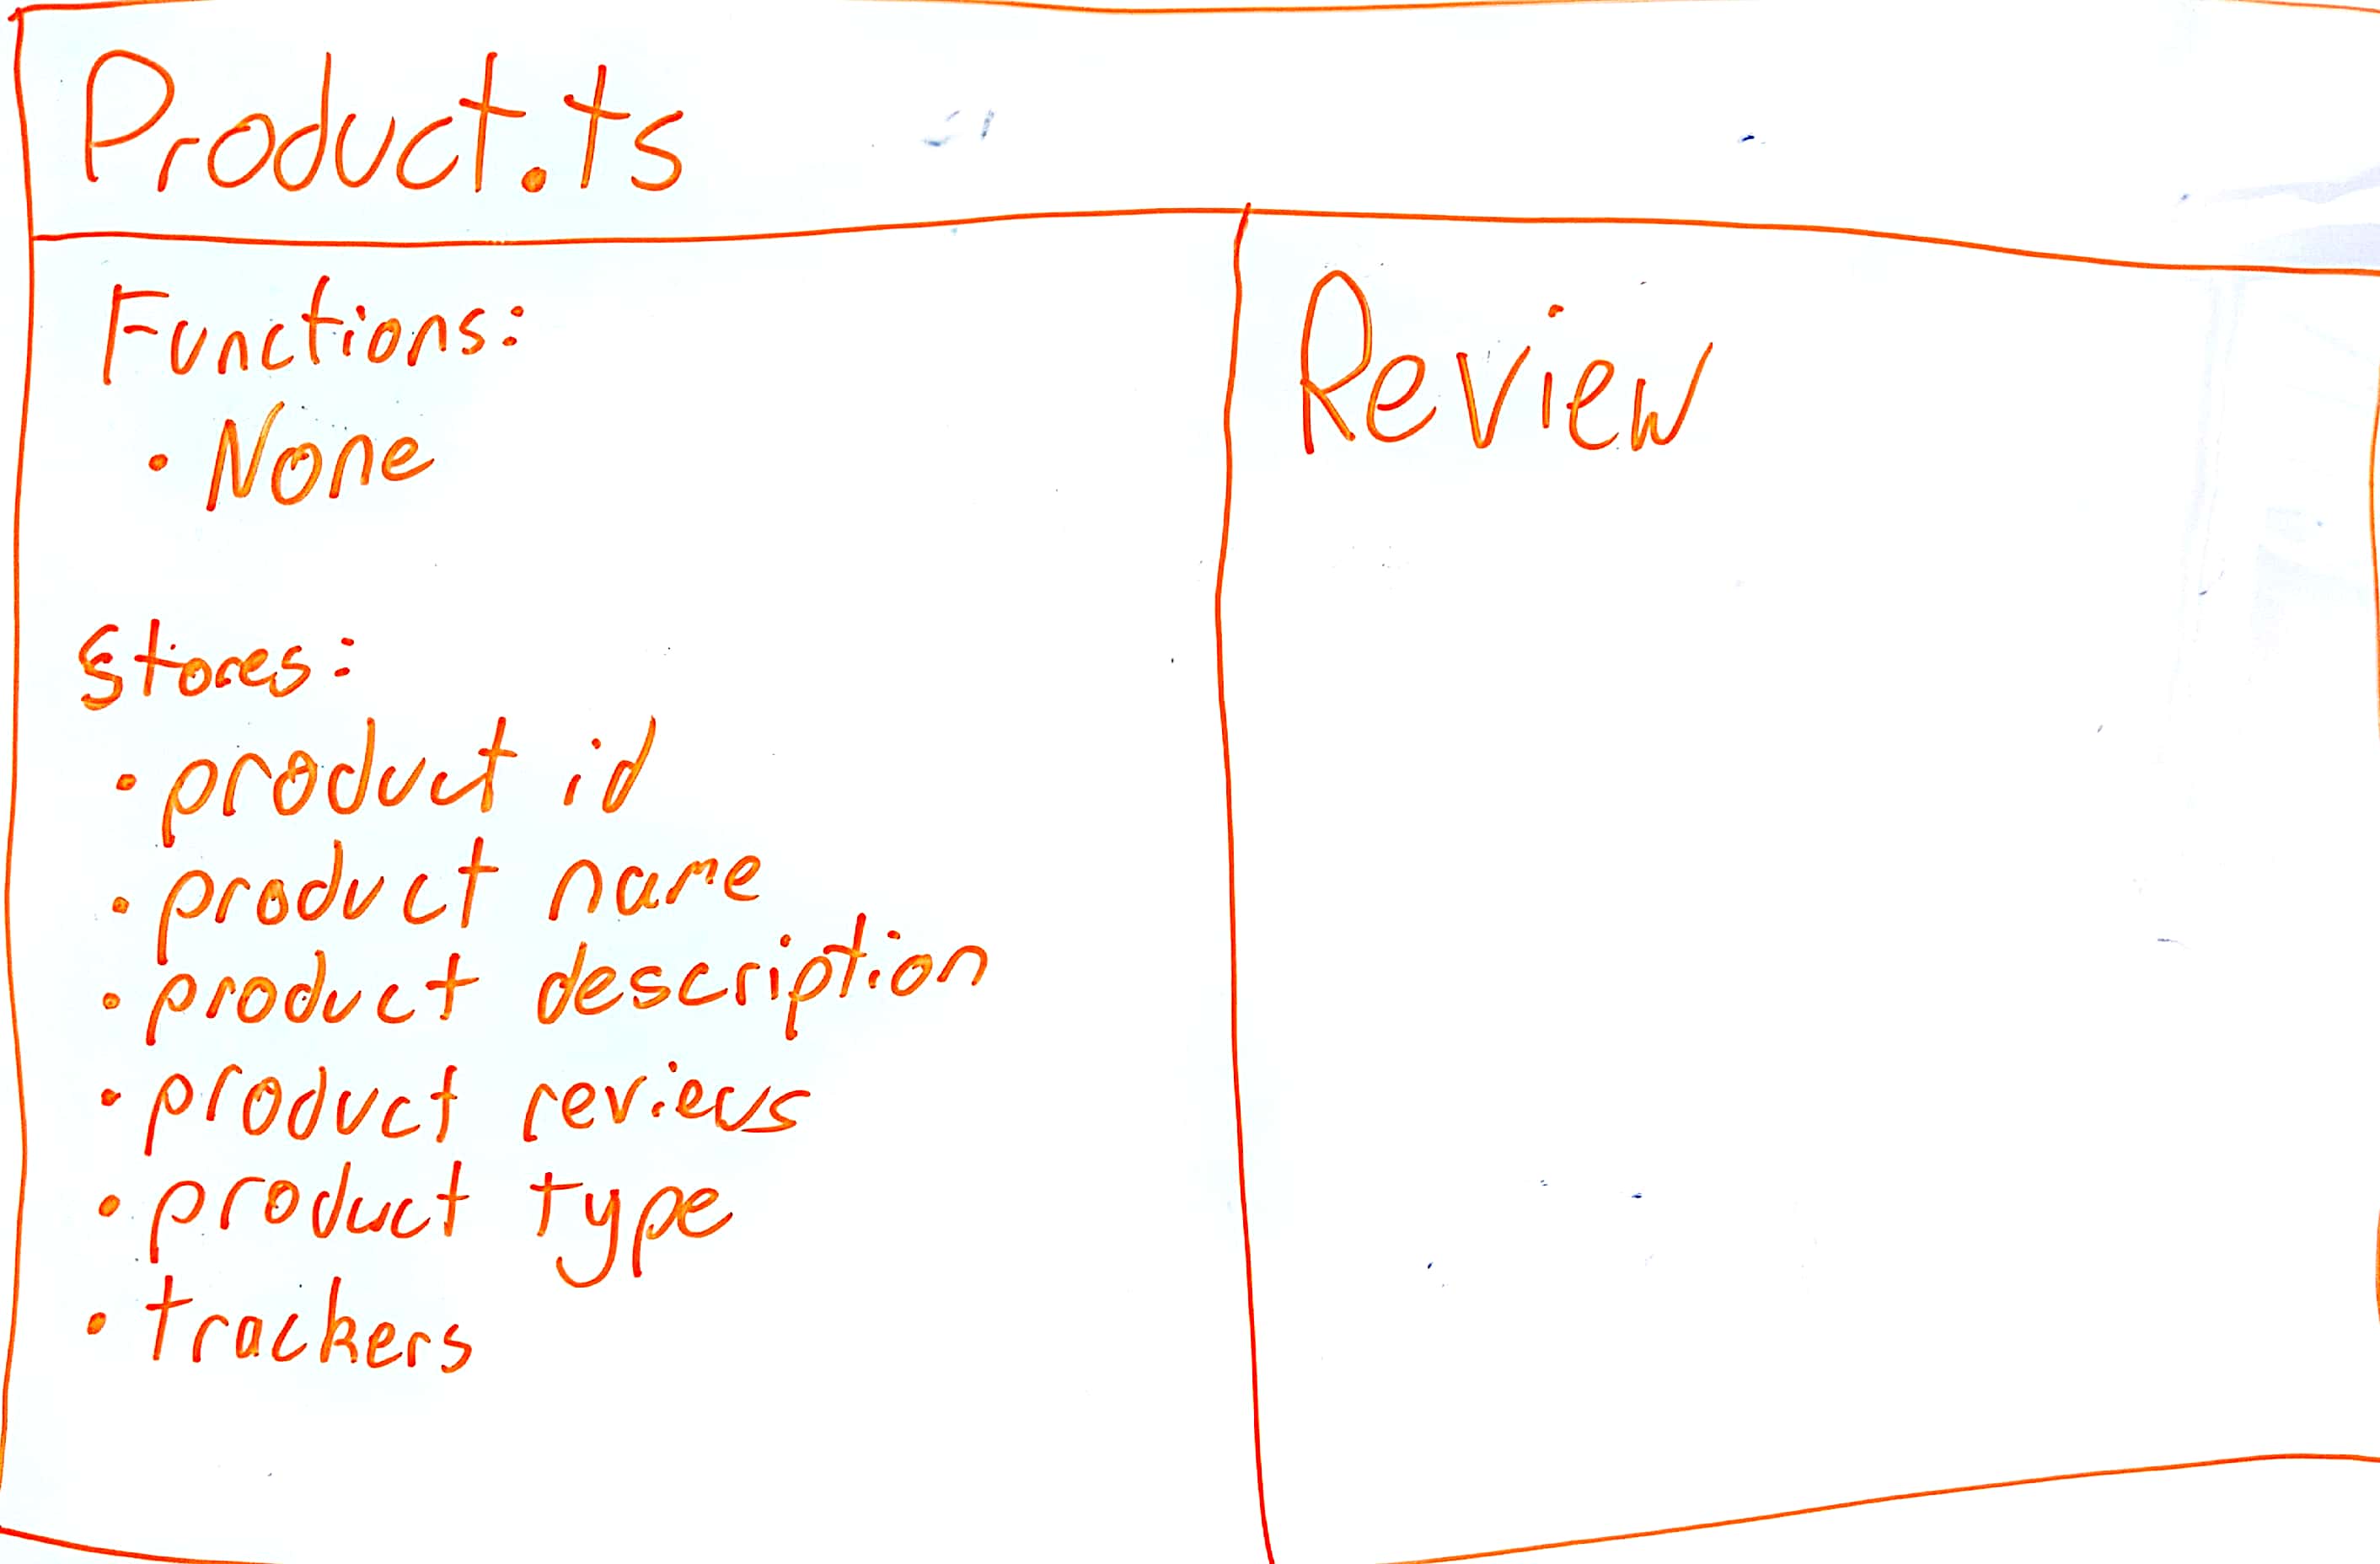 Product.ts
Functions:
• None
Stores:
• product id
• product name
• product description
• product reviews
• product type
• trackers
Review